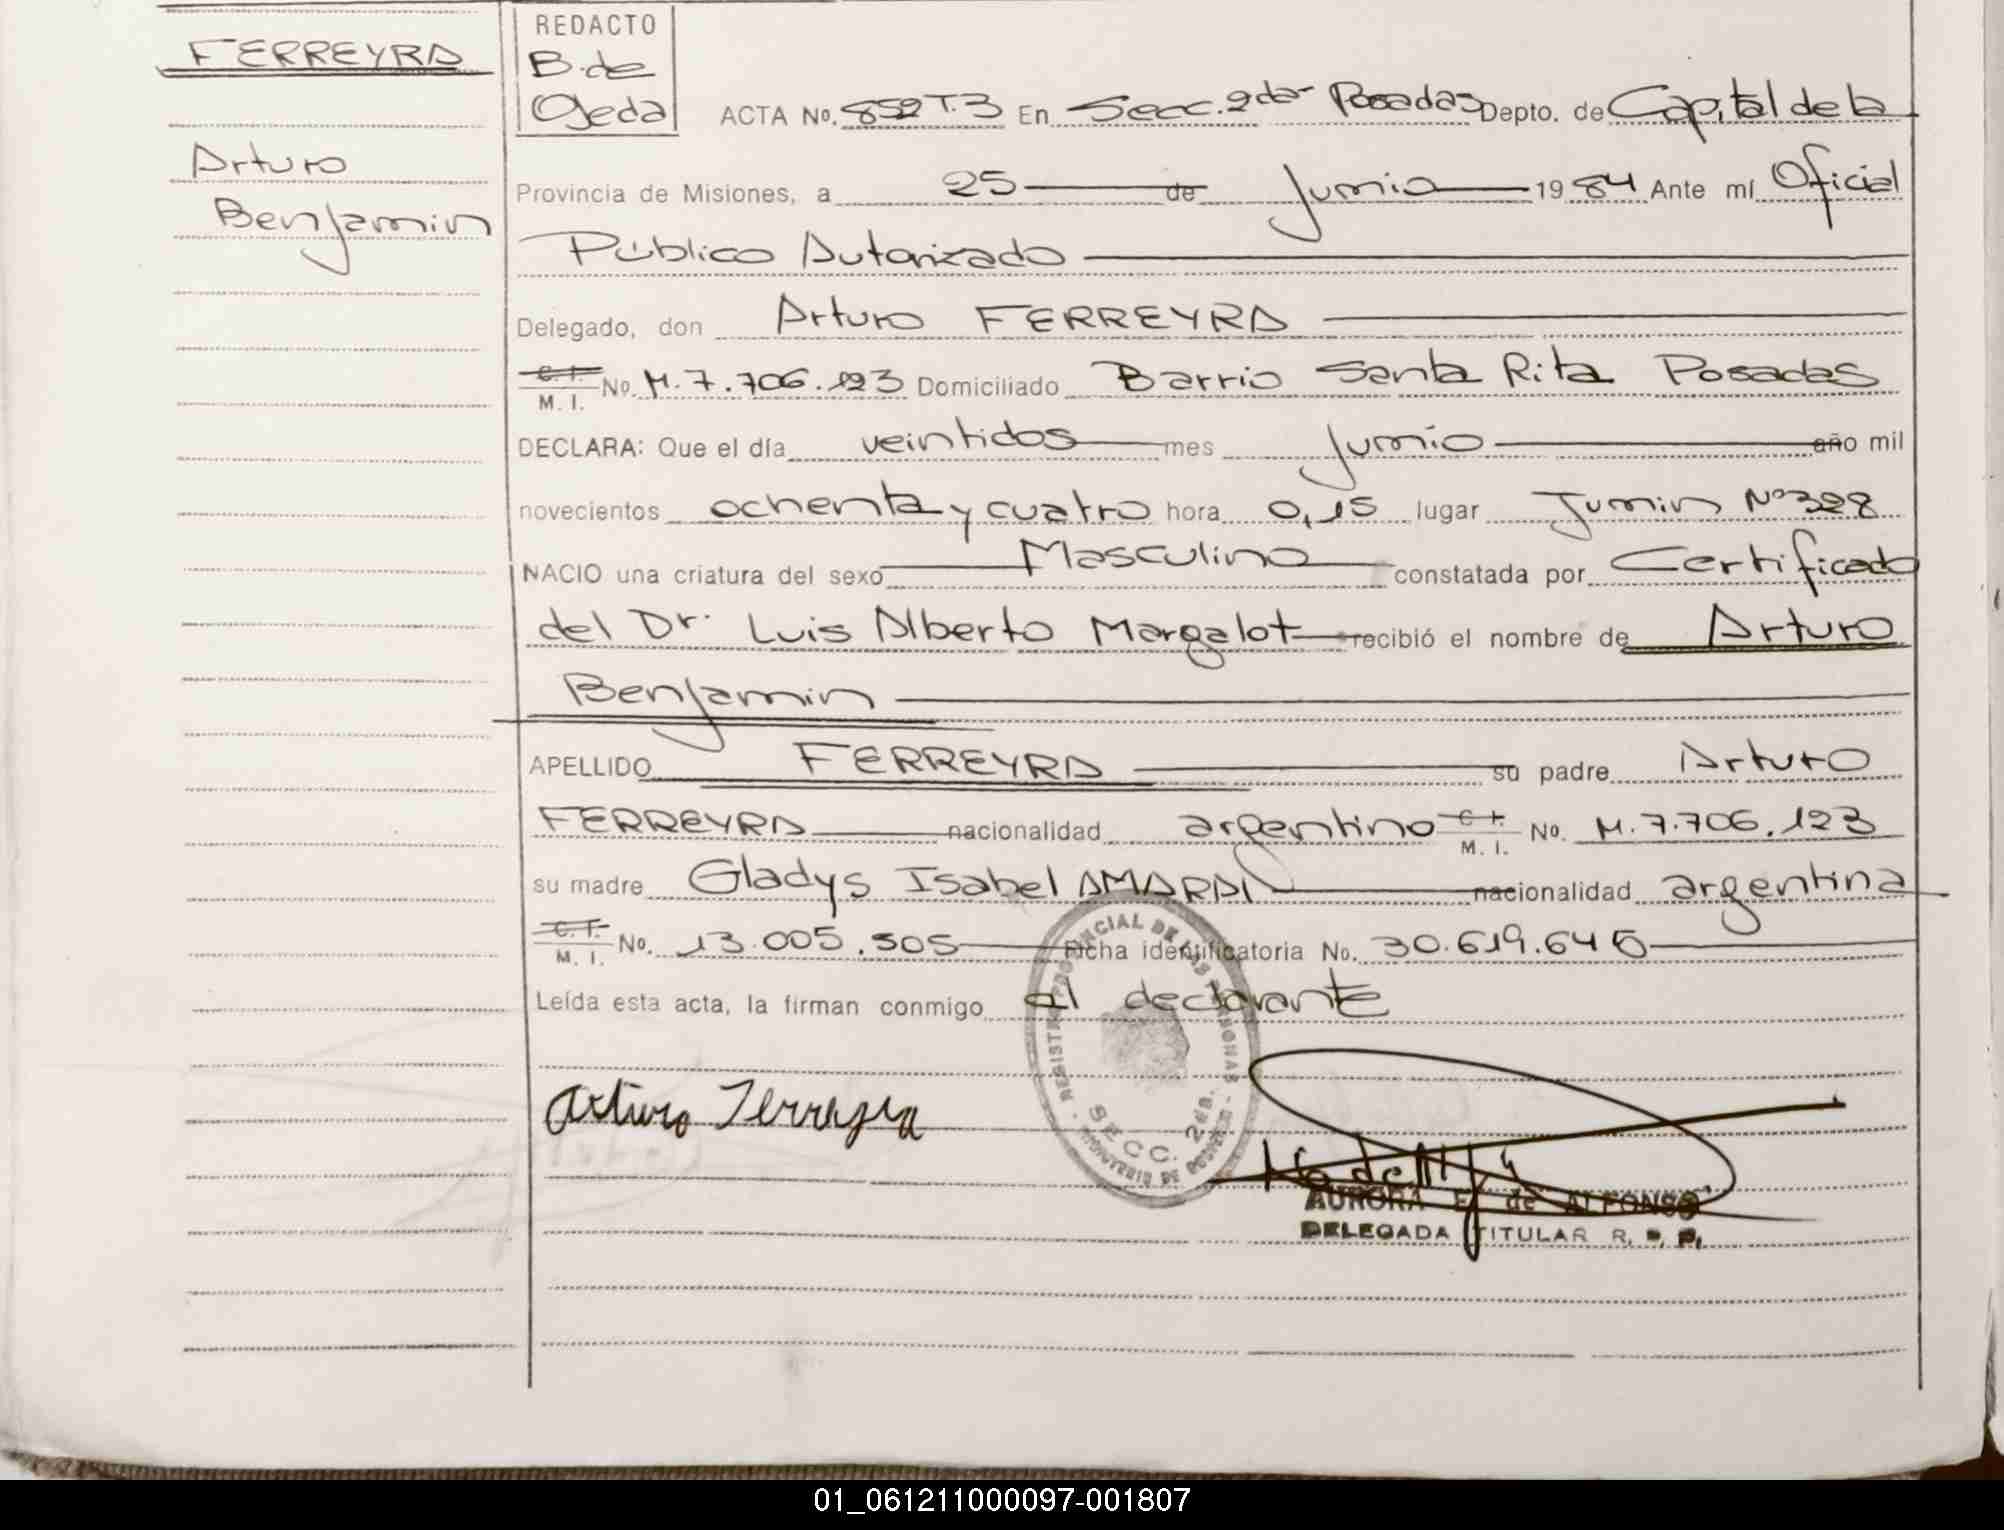 FERREYRA
Arturo
Benjamin
REDACTO
B. de
Ojeda
ACTA No. 852 T.3 En Secc. 2da- Posadas Depto. de Capital de la
Provincia de Misiones, a 25 de Junio 1984 Ante mí Oficial
Público Autorizado
Delegado, don Arturo FERREYRA
C. I. No. M. 7.706.123 Domiciliado Barrio Santa Rita Posadas
M. I.
DECLARA: Que el día veintidos mes Junio año mil
novecientos ochenta y cuatro hora 0,15 lugar Junin Nº 328
NACIO una criatura del sexo Masculino constatada por Certificado
del Dr. Luis Alberto Margalot recibió el nombre de Arturo
Benjamin
APELLIDO FERREYRA su padre Arturo
FERREYRA nacionalidad argentino C. I. No. M. 7.706.123
M. I.
su madre Gladys Isabel AMARAI nacionalidad argentina
C. I. No. 13.005.505 Ficha identificatoria No. 30.619.645
M. I.
Leída esta acta, la firman conmigo al declarante
Arturo Ferreyra
REGISTRO PROVINCIAL DE LAS PERSONAS
SECC. 2da.
AURORA E. de ALFONSO
DELEGADA TITULAR R. P. P.
01_061211000097-001807